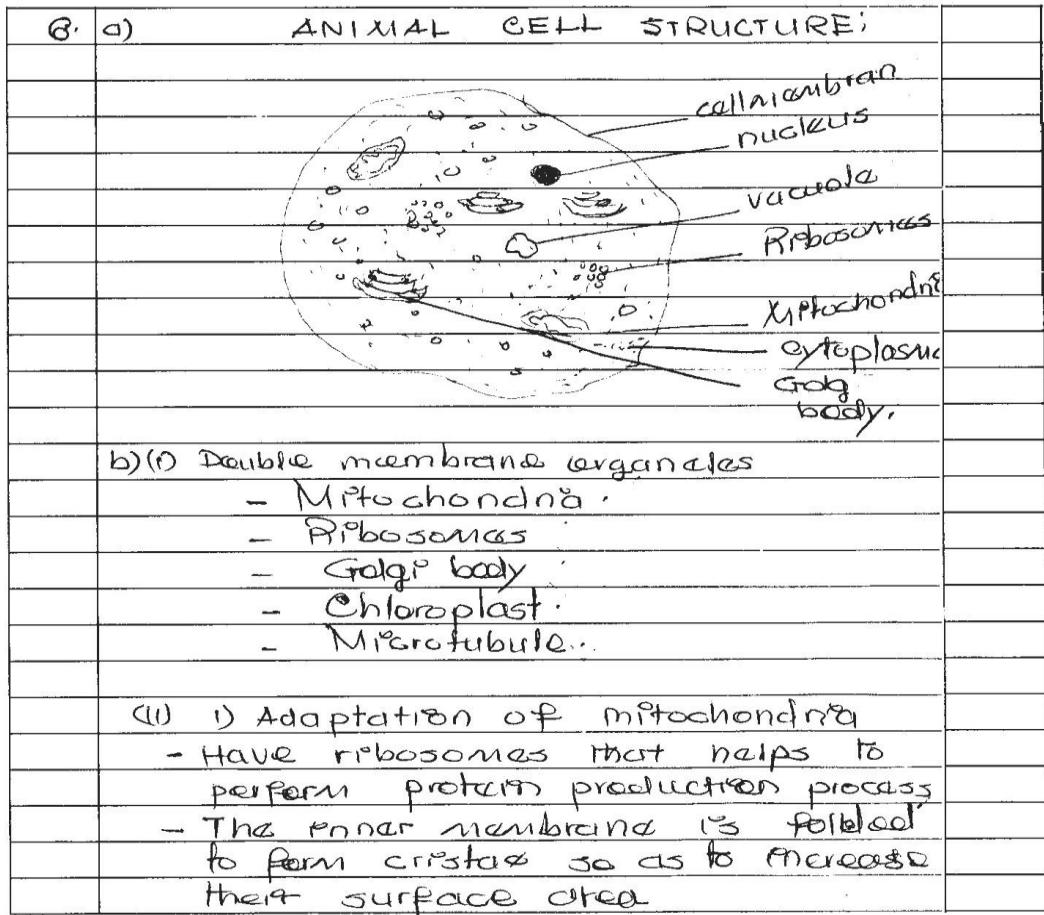 8. a) ANIMAL CELL STRUCTURE;
cellmembran
nucleus
vacuole
Ribosomes
Mitochondri
cytoplasm
Golg
body.
b)(i) Double membrane organeles
- Mitochondria.
- Ribosomes
- Golgi body
- Chloroplast.
- Microtubule..
(ii) i) Adaptation of mitochondria
- Have ribosomes that helps to
perform protein production process
- The inner membrane is folded
to form cristae so as to increase
their surface area